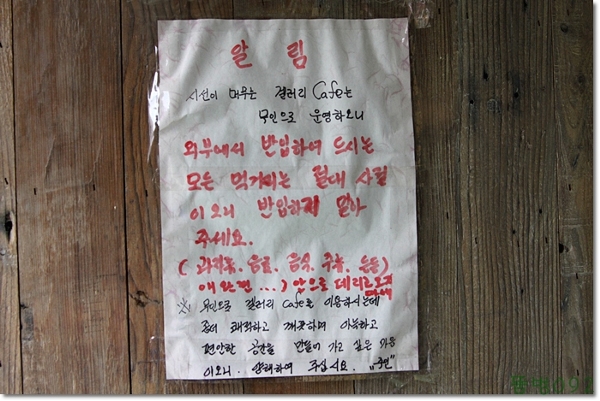 알 림
시선이 머무는 갤러리 Cafe는
무인으로 운영하오니
외부에서 반입하여 드시는
모든 먹거리는 절대 사절
이오니 반입하지 말아
주세요.
(과직류. 음료. 음식. 주류. 등등)
애완견 ...) 앞으로 데리고오지
※ 무인으로 갤러리 Cafe를 이용하시는데
좀더 쾌적하고 깨끗하며 아늑하고
편안한 공간을 만들어 가고 싶은 마음
이오니. 양해하여 주십시요. "주인"